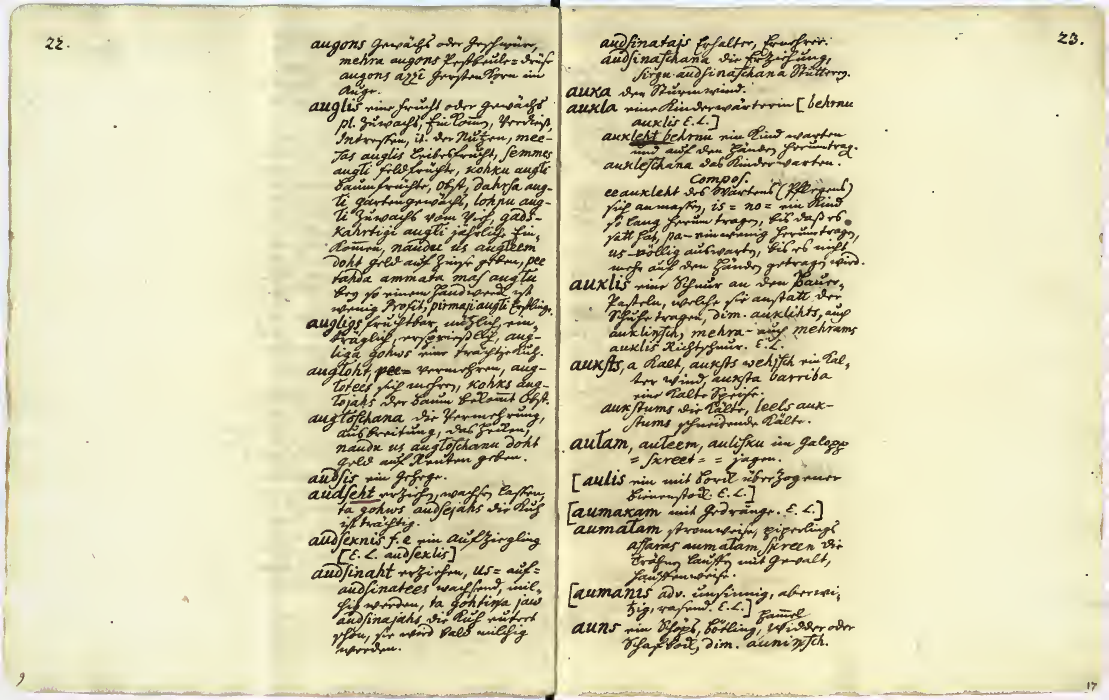 22.
augons Gewächs oder Geschwür,
mehra augons Pestbeule-drüse
augons azzi Gersten Korn im
Auge.
auglis eine Frucht oder Gewächs
pl. Zuwachs, Einkomm, Verdienst,
Intressen, it. der Nutzen, mee-
sas auglis Leibesfrucht, semmes
augli Feldfrüchte, kohku augli
Baumfrüchte, Obst, dahrsa aug-
li Gartengewächs, lohpu aug-
li Zuwachs vom Vieh, gads-
kahrtigi augli jährliche Ein-
kommen, naudu us augleem
doht Geld auf Zinse geben, pee
tahda ammata mas auglu
bey so einem Handwerk ist
wenig Profit, pirmaji augli Erstlinge.
augligs fruchtbar, nützlich, ein-
träglich, ersprießlich, aug-
liga gohws eine trächtge Kuh.
augloht, pee= vermehren, aug-
lotees sich mehren, kohks aug-
lojahs der Baum bekommt Obst.
augloschana die Vermehrung,
ausbreitung, das
naudu us augloschanu doht
Geld auf Renten geben.
audsis ein Gehege.
audseht erziehen, wachsen lassen,
ta gohws audsejahs die Kuh
ist trächtig.
audseknis f. e ein Aufziegling
[E. L. audseklis]
audsinaht erziehen, us= auf=
audsinatees wachsend, mil-
chig werden, ta gohtiņa jau
audsinajahs die Kuh eutert
schon, sie wird bald milchig
werden.
9
23.
audsinatajs Erhalter, Ernehrer.
audsinaschana die Erziehung,
sirgu audsinaschana Stutterey.
auka der Sturmwind.
aukla eine Kinderwärterin [behrnu
auklis E. L.]
aukleht behrnu ein Kind warten
und auf den Händen herumtrag.
aukleschana das Kinderwarten.
Compos.
eeaukleht des Wartens (Pflegens)
sich anmaßen, is= no= ein Kind
so lang herum tragen, bis daß es
satt hat, pa- ein wenig herumtragen,
us- völlig auswarten, bis es nicht
mehr auf den Händen getragen wird.
auklis eine Schnur an den Bauer-
Pasteln, welche sie anstatt der
Schuhe tragen, dim. auklihts, auch
auklinsch, mehra- auch mehrams
auklis Richtschnur. E. L.
auksts, a Kalt, auksts wehjsch ein Kal-
ter wind, auksta barriba
eine Kalte Speise.
aukstums die Kälte, leels auk-
stums schneidende Kälte.
aulam, auleem, aulisku im Galopp
= skreet = = jagen.
[aulis ein mit Bork überzogener
Bienenstock. E. L.]
[aumakam mit Gedränge. E. L.]
aumalam stromweise, piperlings
assaras aumalam skreen die
Trähnen lauffen mit Gewalt,
hauffenweise.
[aumanis adv. unsinnig, aberwi-
tzig, rasend. E. L.]
Hammel
auns ein Schöps, Bötling, Widder oder
Schaf bock, dim. auninsch.
17